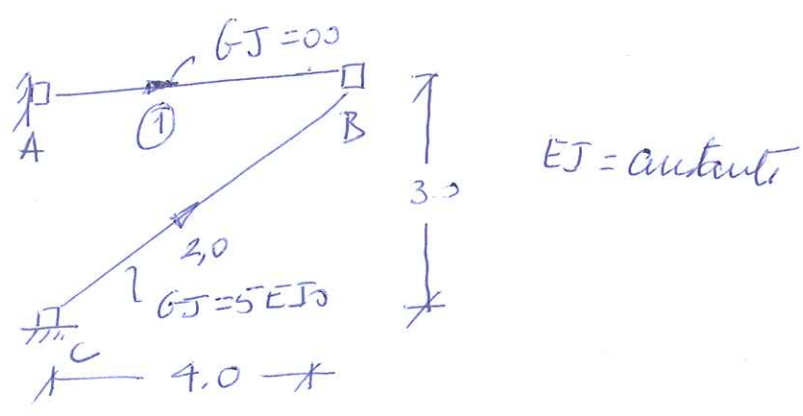 GJ = ∞
A
①
B
EJ = constante
3.0
2,0
GJ = 5EJ0
C
4.0